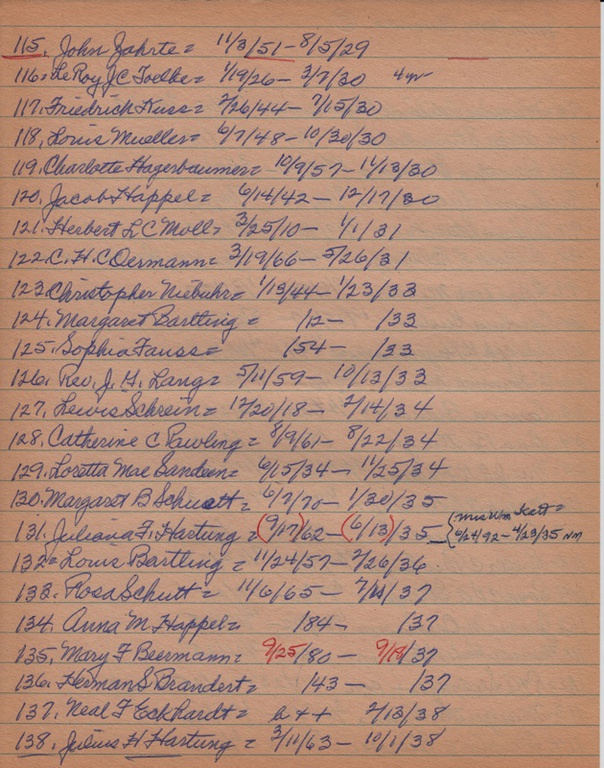 115. John Zahrte = 11/3/51 - 8/5/29
116 = LeRoy J C Toelke = 1/19/26 - 3/7/30 4 yr
117. Friedrich Kuss = 2/26/44 - 7/15/30
118. Louis Mueller = 6/7/48 - 10/30/30
119. Charlotte Hagerbaumer = 10/9/57 - 11/13/30
120. Jacob Happel = 6/14/42 - 12/17/30
121. Herbert L C Moll = 3/25/10 - 1/1/31
122. C. H. C Oermann = 3/19/66 - 5/26/31
123. Christopher Niebuhr = 1/13/44 - 1/23/33
124. Margaret Bartling = /12 - /33
125. Sophia Fauss = /54 - /33
126. Rev. J. H. Lang = 5/11/59 - 10/13/33
127. Lewis Schrein = 12/20/18 - 2/14/34
128. Catherine C Pawling = 8/9/61 - 8/22/34
129. Loretta Mae Sandeen = 6/15/34 - 11/25/34
130. Margaret B Schuett = 6/7/70 - 1/30/35
131. Juliana F. Hartung = (9/17)/62 - (6/13)/35 - { Mrs Wm = 6/24/92 - 4/23/35 NM
132 = Louis Bartling = 11/24/57 - 2/26/36.
133. Rosa Schutt = 11/6/65 - /37
134. Anna M Happel = /84 - /37
135. Mary F Beermann = 9/25/80 - 9/18/37
136. Herman S Brandert = /43 - /37
137. Neal F Eckhardt = 2/13/38
138. Julius H Hartung = 3/11/63 - 10/1/38